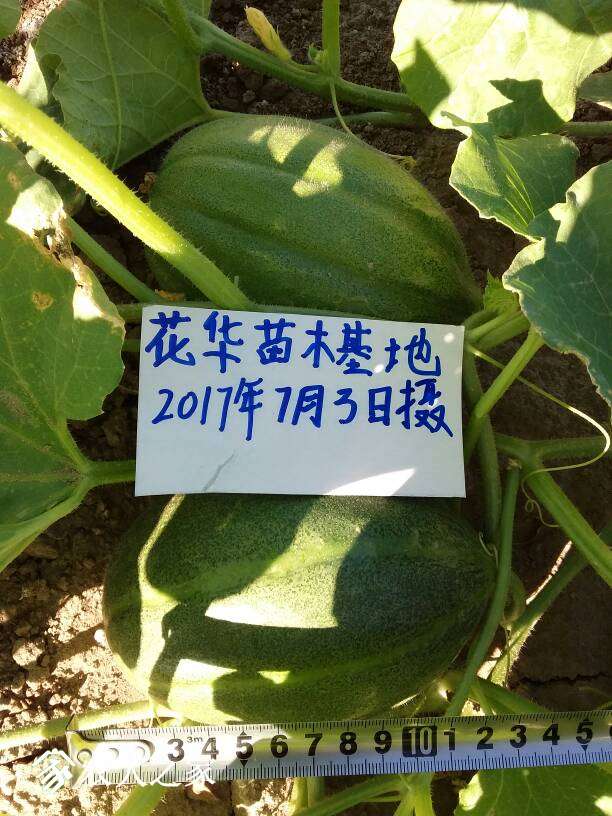 花华苗木基地
2017年7月3日摄
3 4 5 6 7 8 9 10 1 2 3 4 5